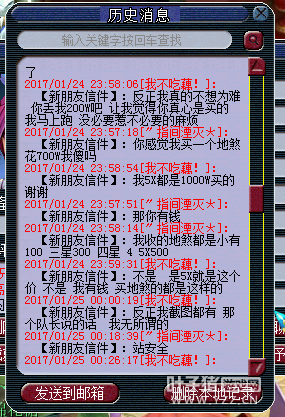 历史消息
输入关键字按回车查找
了
2017/01/24 23:58:06[我不吃藕！]:
【新朋友信件】: 反正我真的不想为难
你 你丢我200W吧 让我觉得你真心是买的
我马上跑 没必要惹不必要的麻烦
2017/01/24 23:57:18[〃指间湮灭火]:
【新朋友信件】: 你感觉我买一个地煞
花700W我傻吗
2017/01/24 23:58:54[我不吃藕！]:
【新朋友信件】: 我5X都是1000W买的
谢谢
2017/01/24 23:57:51[〃指间湮灭火]:
【新朋友信件】: 那你有钱
2017/01/24 23:58:14[〃指间湮灭火]:
【新朋友信件】: 我收的地煞都是小有
100 三星300 四星 4 5X500
2017/01/24 23:59:31[我不吃藕！]:
【新朋友信件】: 不是 是5X就是这个
价 不是 我有钱 买地煞的都是这样的
2017/01/25 00:00:19[我不吃藕！]:
【新朋友信件】: 反正我截图都有 那
个队长说的话 我无所谓的
2017/01/25 00:18:39[〃指间湮灭火]:
【新朋友信件】: 站安全
2017/01/25 00:26:17[我不吃藕！]:
发送到邮箱
删除本地记录